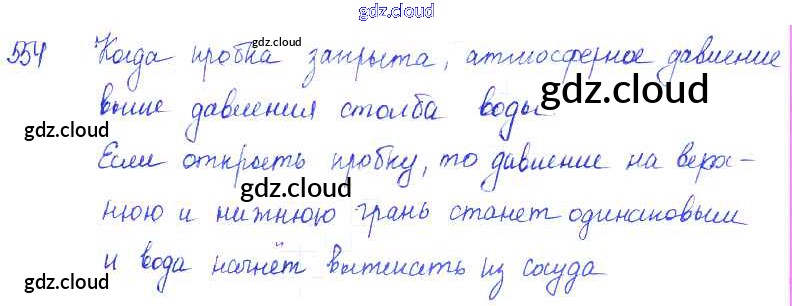 gdz.cloud
554 Когда пробка закрыта, атмосферное давление
gdz.cloud
выше давления столба воды.
gdz.cloud
gdz.cloud
Если открыть пробку, то давление на верх-
gdz.cloud
нюю и нижнюю грань станет одинаковым
gdz.cloud
и вода начнёт вытекать из сосуда
gdz.cloud
gdz.cloud